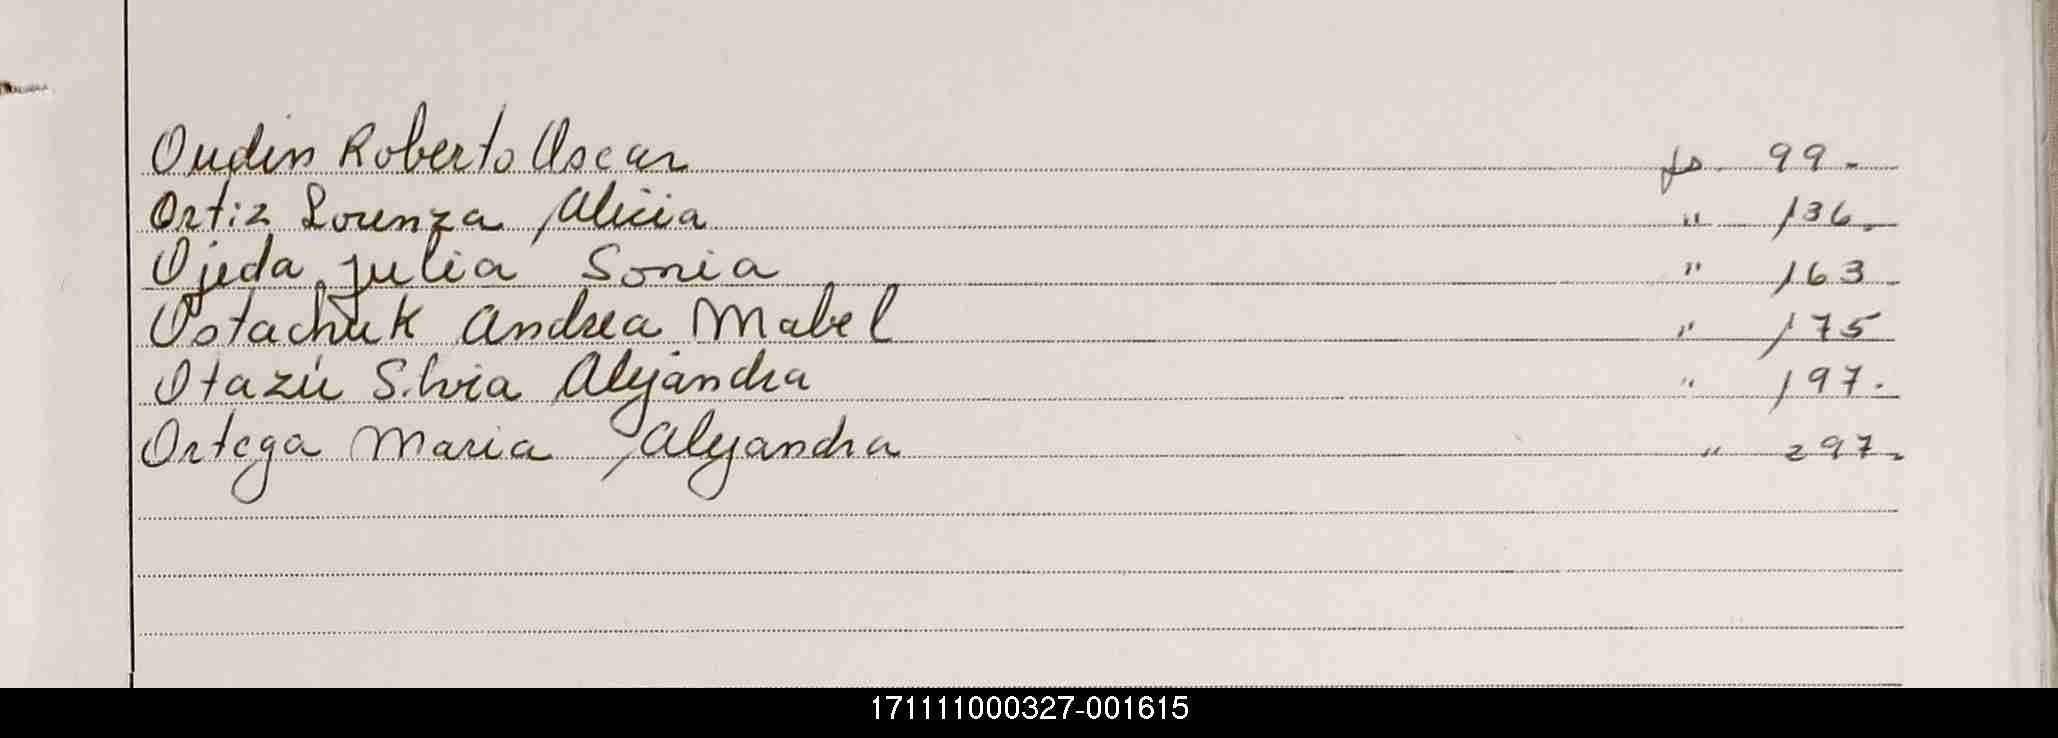 Oudin Roberto Oscar fs. 99.-
Ortiz Lorenza Alicia " 136.
Ojeda Julia Sonia " 163
Ostachuk Andrea Mabel " 175
Otazú Silvia Alejandra " 197.
Ortega Maria Alejandra " 297.
171111000327-001615